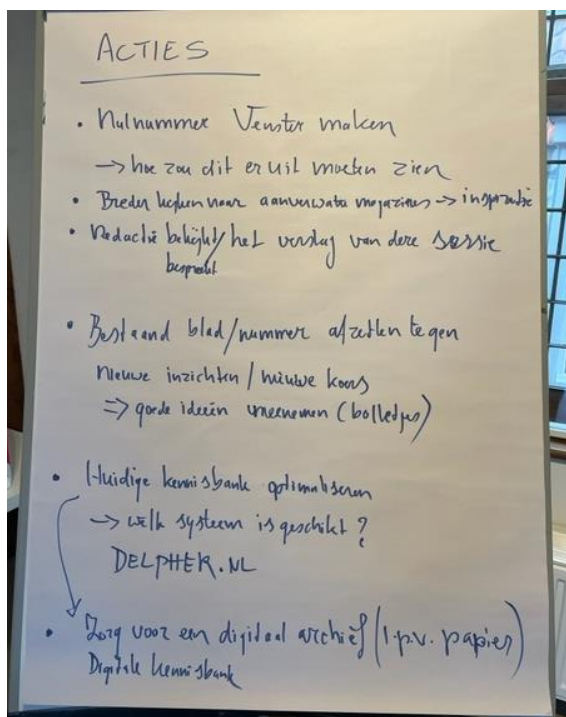 ACTIES
• Nulnummer Venster maken
→ hoe zou dit er uit moeten zien
• Breder kijken naar aanverwate magazines → inspiratie
• Redactie bekijkt/het verslag van deze sessie
bespreekt
• Bestaand blad/nummer afzetten tegen
nieuwe inzichten / nieuwe koers
⇒ goede ideeën meenemen (bolletjes)
• Huidige kennisbank optimaliseren
→ welk systeem is geschikt?
DELPHER.NL
• Zorg voor een digitaal archief (i.p.v. papier)
Digitale kennisbank